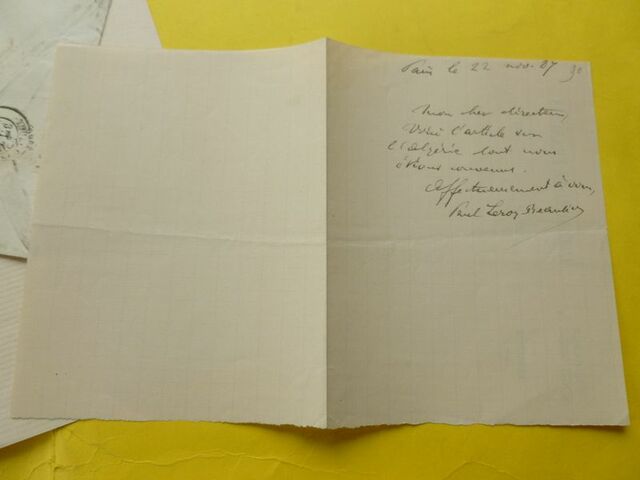 Paris le 22 nov. 87
Mon cher directeur,
Voici l'article sur
l'Algérie dont nous
étions convenus.
Affectueusement à vous,
Paul Leroy-Beaulieu